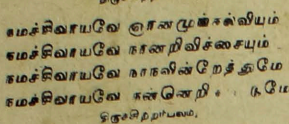 நமச்சிவாயவே ஞானமுங்கல்வியும்
நமச்சிவாயவே நானறிவிச்சையும்
நமச்சிவாயவே நாநவின்றேத்துமே
நமச்சிவாயவே நன்னெறி டுமே
திருச்சிற்றம்பலம்.